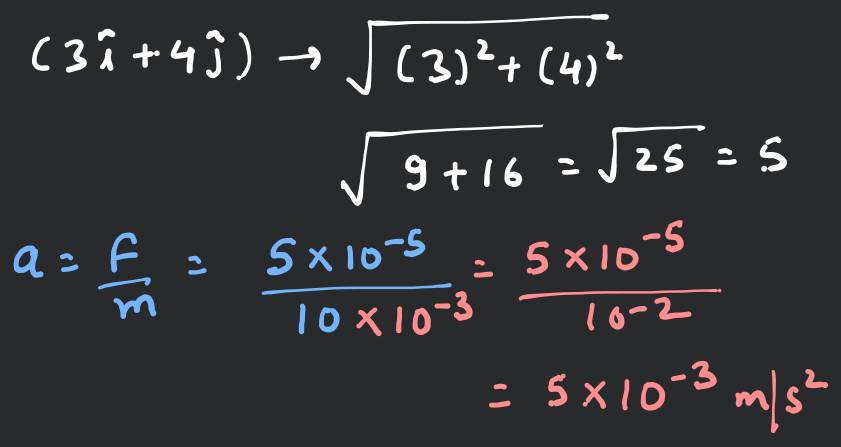 (3î + 4ĵ) → √(3)² + (4)²
√9 + 16 = √25 = 5
a = F/m = 5 × 10⁻⁵/10 × 10⁻³ = 5 × 10⁻⁵/10⁻²
= 5 × 10⁻³ m/s²